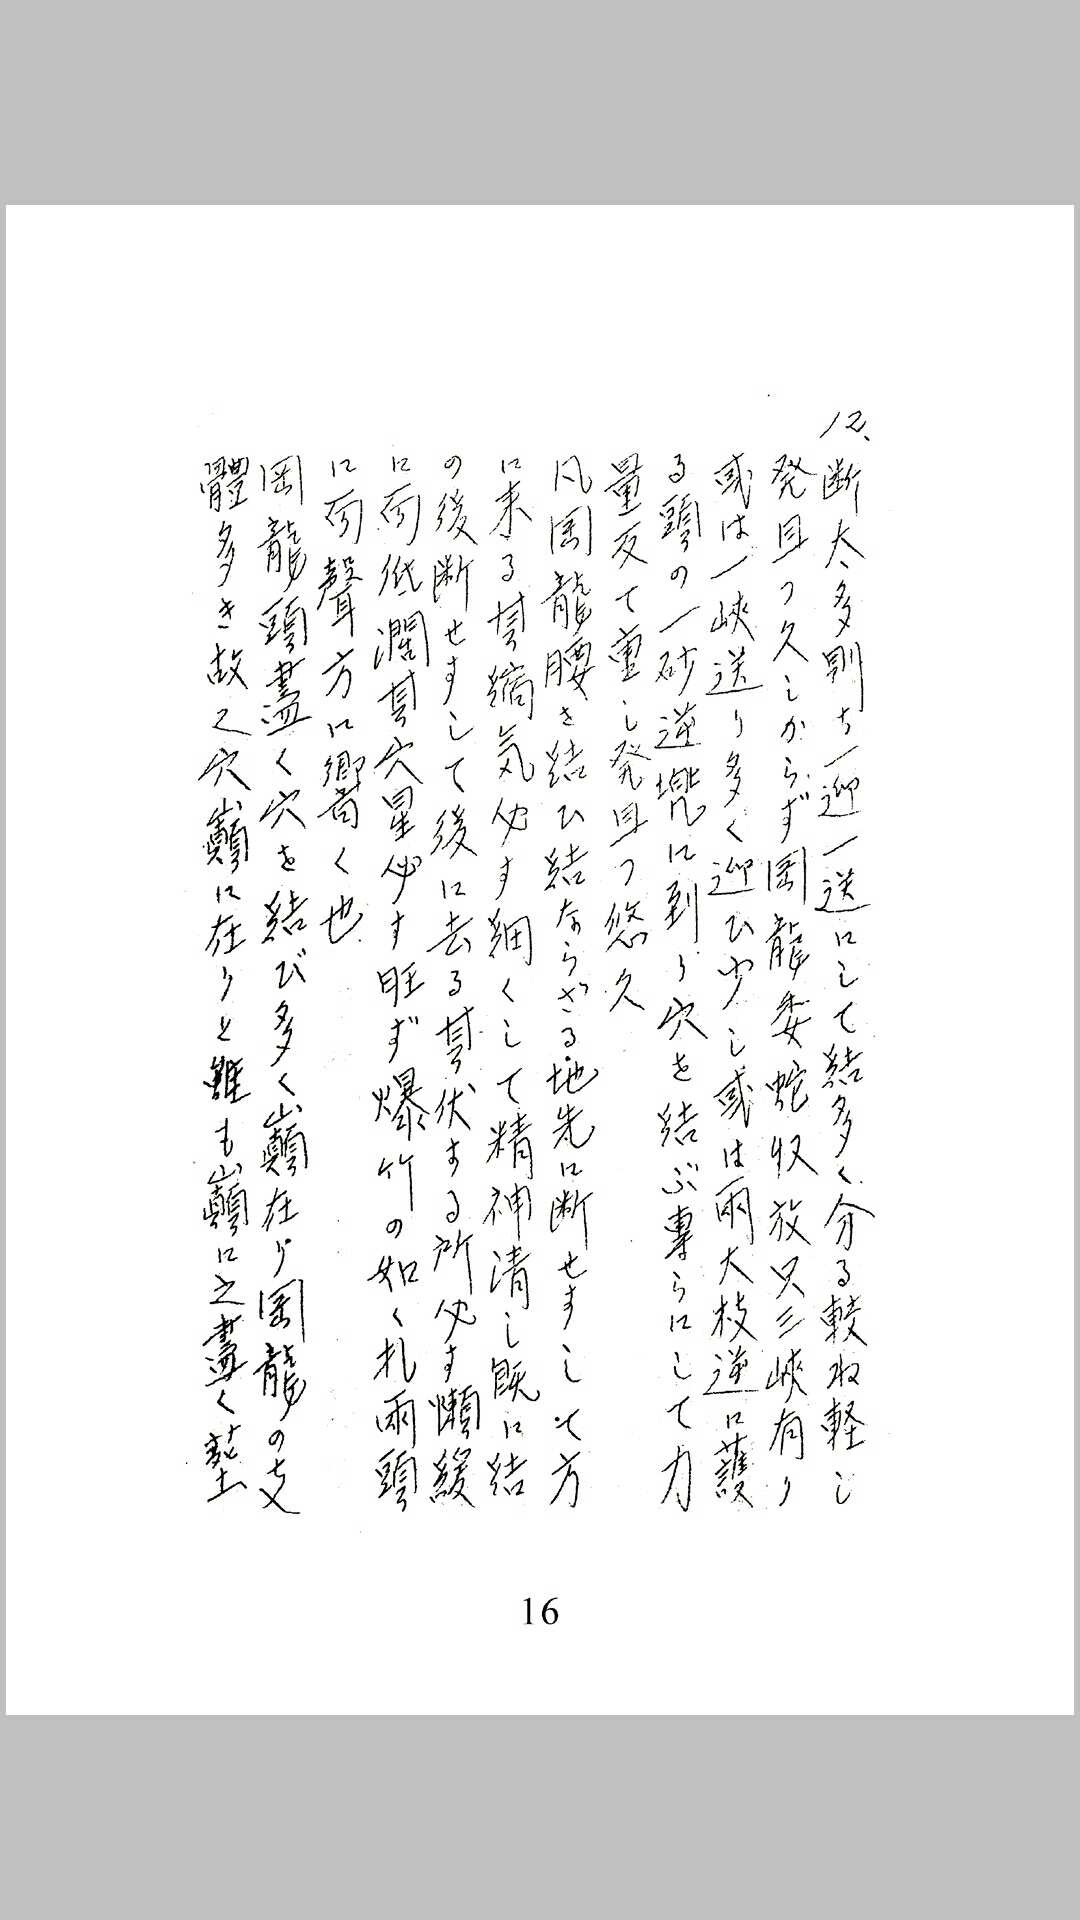 12、
断太多則ち一迎一送にして結多く分る較ね軽し
発且つ久しからず岡龍委蛇収放只三峽有り
或は一峽送り多く迎ひ少し或は両大枝逆に護
る頭の一砂逆に到り穴を結ぶ専らにして力
量反て重し発且つ悠久
凡岡龍腰を結ひ結ならざる地先に断せすして方
に来る其縮気必す細くして精神清し既に結
の後断せすして後に去る其伏する所必す懶緩
に而低濶其穴星必す旺ず爆竹の如く札両頭
に而聲方に響く也
岡龍頭盡く穴を結び多く巓在り岡龍の支
體多き故之穴巓に在りと雖も巓に之盡く塟
16